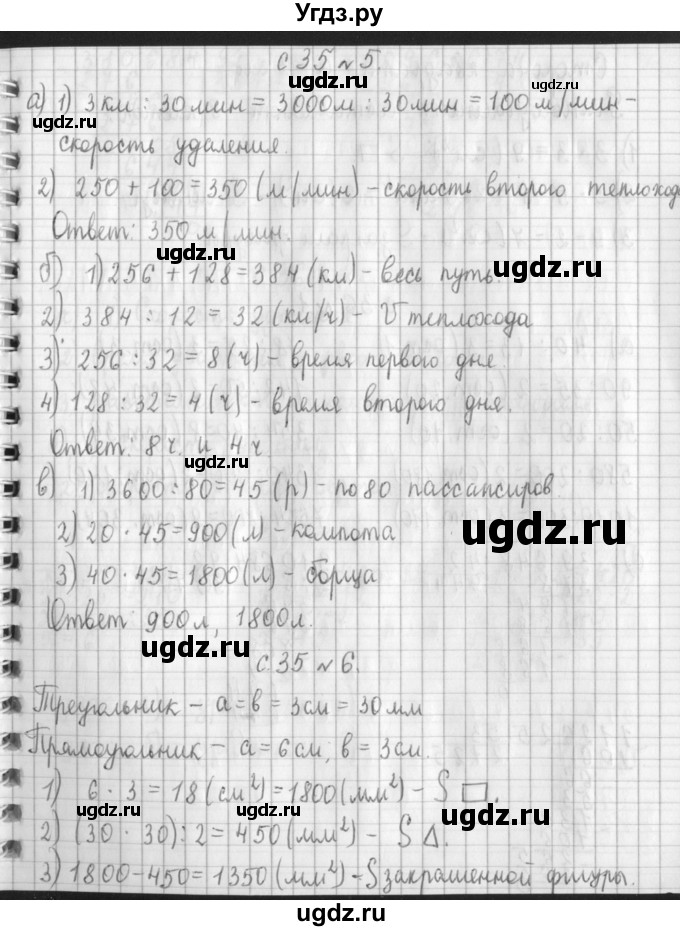 Угдз.ру
с 35 № 5.
ugdz.ru
ugdz.ru
а) 1) 3 км : 30 мин = 3000 м : 30 мин = 100 м/мин -
ugdz.ru
скорость удаления.
2) 250 + 100 = 350 (м/мин) - скорость второго теплохода
Ответ: 350 м/мин.
ugdz.ru
б) 1) 256 + 128 = 384 (км) - весь путь.
2) 384 : 12 = 32 (км/ч) - V теплохода
3) 256 : 32 = 8 (ч) - время первого дне
4) 128 : 32 = 4 (ч) - время второго дне.
Ответ: 8 ч. и 4 ч
ugdz.ru
в) 1) 3600 : 80 = 45 (р) - по 80 пассапсиров
2) 20 · 45 = 900 (л) - компота
ugdz.ru
3) 40 · 45 = 1800 (л) - борща
Ответ: 900 л, 1800 л.
ugdz.ru
с. 35 № 6.
Треугольник - a = b = 3 см = 30 мм
Прямоугольник - a = 6 см, b = 3 см.
1) 6 · 3 = 18 (см²) = 1800 (мм²) - S □.
ugdz.ru
ugdz.ru
ugdz.ru
2) (30 · 30) : 2 = 450 (мм²) - S Δ.
3) 1800 - 450 = 1350 (мм²) - S закрашенной фигуры.
ugdz.ru